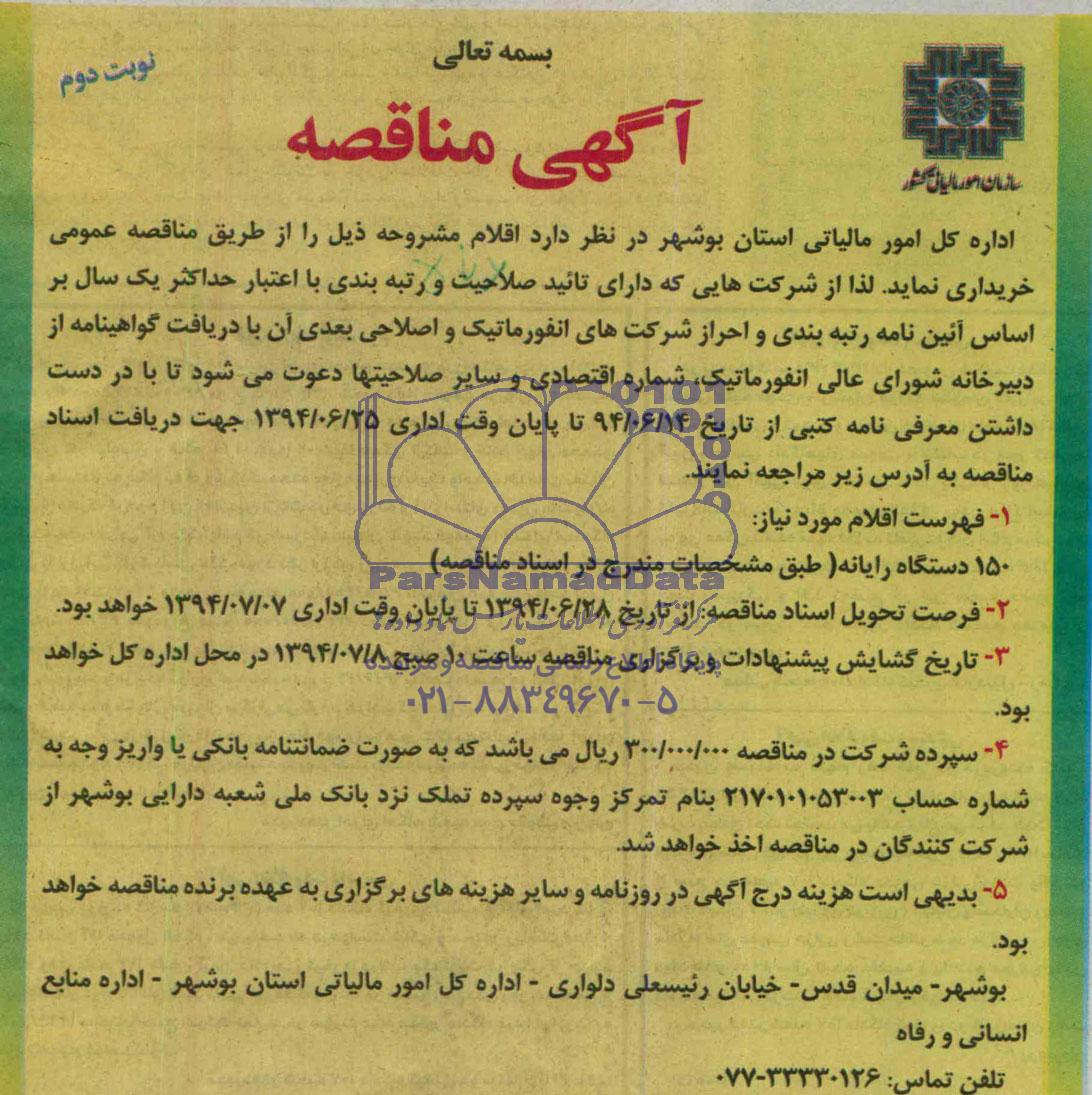 بسمه تعالی
نوبت دوم
سازمان امور مالیاتی کشور
آگهی مناقصه
اداره کل امور مالیاتی استان بوشهر در نظر دارد اقلام مشروحه ذیل را از طریق مناقصه عمومی
خریداری نماید. لذا از شرکت هایی که دارای تائید صلاحیت و رتبه بندی با اعتبار حداکثر یک سال بر
اساس آئین نامه رتبه بندی و احراز شرکت های انفورماتیک و اصلاحی بعدی آن با دریافت گواهینامه از
دبیرخانه شورای عالی انفورماتیک، شماره اقتصادی و سایر صلاحیتها دعوت می شود تا با در دست
داشتن معرفی نامه کتبی از تاریخ ۹۴/۰۶/۱۴ تا پایان وقت اداری ۱۳۹۴/۰۶/۲۵ جهت دریافت اسناد
مناقصه به آدرس زیر مراجعه نمایند.
۱- فهرست اقلام مورد نیاز:
۱۵۰ دستگاه رایانه( طبق مشخصات مندرج در اسناد مناقصه)
ParsNamadData
۲- فرصت تحویل اسناد مناقصه: از تاریخ ۱۳۹۴/۰۶/۲۸ تا پایان وقت اداری ۱۳۹۴/۰۷/۰۷ خواهد بود.
۳- تاریخ گشایش پیشنهادات و برگزاری مناقصه ساعت ۱۰ صبح ۱۳۹۴/۰۷/۸ در محل اداره کل خواهد
پایگاه اطلاع رسانی مناقصه و مزایده
بود.
۰۲۱-۸۸۳۴۹۶۷۰-۵
۴- سپرده شرکت در مناقصه ۳۰۰/۰۰۰/۰۰۰ ریال می باشد که به صورت ضمانتنامه بانکی یا واریز وجه به
شماره حساب ۲۱۷۰۱۰۱۰۵۳۰۰۳ بنام تمرکز وجوه سپرده تملک نزد بانک ملی شعبه دارایی بوشهر از
شرکت کنندگان در مناقصه اخذ خواهد شد.
۵- بدیهی است هزینه درج آگهی در روزنامه و سایر هزینه های برگزاری به عهده برنده مناقصه خواهد
بود.
بوشهر- میدان قدس- خیابان رئیسعلی دلواری - اداره کل امور مالیاتی استان بوشهر - اداره منابع
انسانی و رفاه
تلفن تماس: ۳۳۳۳۰۱۲۶-۰۷۷